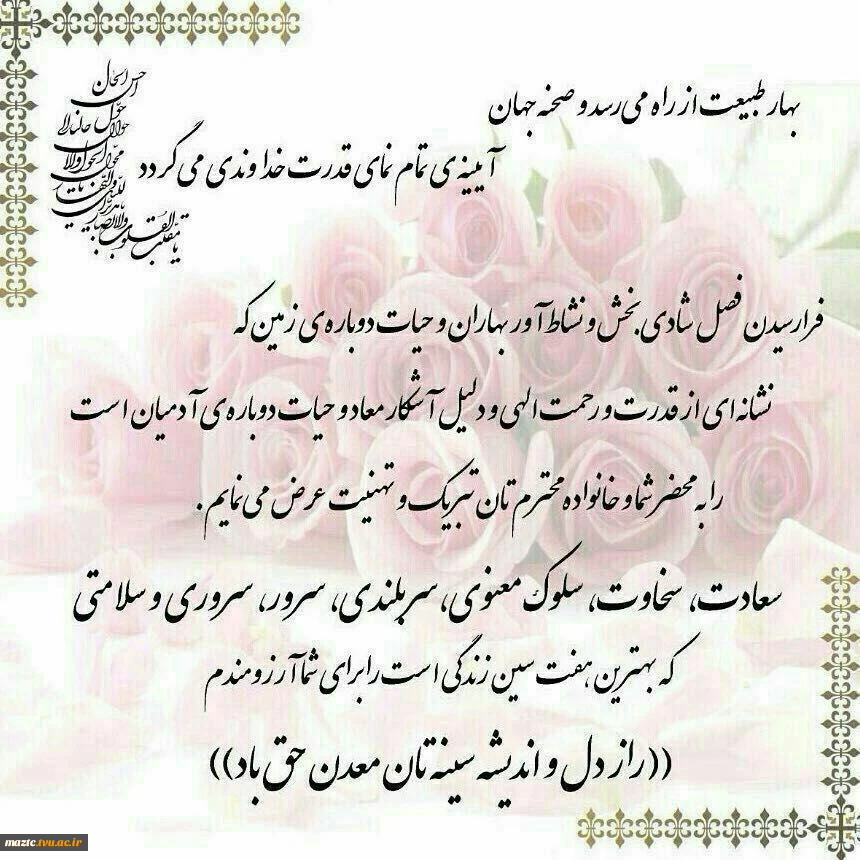 بهار طبیعت از راه می‌رسد و صحنه جهان
آیینه‌ی تمام نمای قدرت خداوندی می‌گردد
یا مقلب القلوب والابصار
یا مدبر اللیل و النهار
یا محول الحول و الاحوال
حول حالنا الی
احسن الحال
فرارسیدن فصل شادی بخش و نشاط آور بهاران و حیات دوباره‌ی زمین که
نشانه‌ای از قدرت و رحمت الهی و دلیل آشکار معاد و حیات دوباره‌ی آدمیان است
را به محضر شما و خانواده محترم تان تبریک و تهنیت عرض می‌نمایم.
سعادت، سخاوت، سلوک معنوی، سربلندی، سرور، سروری و سلامتی
که بهترین هفت سین زندگی است را برای شما آرزومندم
((راز دل و اندیشه سینه تان معدن حق باد))
maztc.tvu.ac.ir